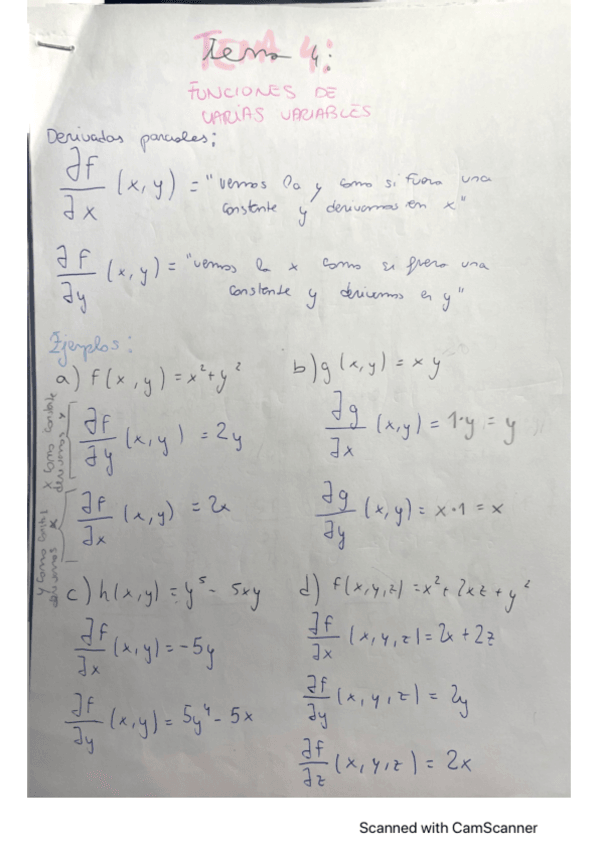 TEMA 4:
FUNCIONES DE
VARIAS VARIABLES
Derivadas parciales;
∂f/∂x (x,y) = "vemos la y como si fuera una
constante y derivamos en x"
∂f/∂y (x,y) = "vemos la x como si fuera una
constante y derivamos en y"
Ejemplos:
a) f(x,y) = x²+y²
x como
derivemos
∂f/∂y (x,y) = 2y
y como
derivemos x
∂f/∂x (x,y) = 2x
b) g(x,y) = x y
∂g/∂x (x,y) = 1·y = y
∂g/∂y (x,y) = x·1 = x
c) h(x,y) = y⁵ - 5xy
∂f/∂x (x,y) = -5y
∂f/∂y (x,y) = 5y⁴ - 5x
d) f(x,y,z) = x² + 2xz + y²
∂f/∂x (x,y,z) = 2x + 2z
∂f/∂y (x,y,z) = 2y
∂f/∂z (x,y,z) = 2x
Scanned with CamScanner